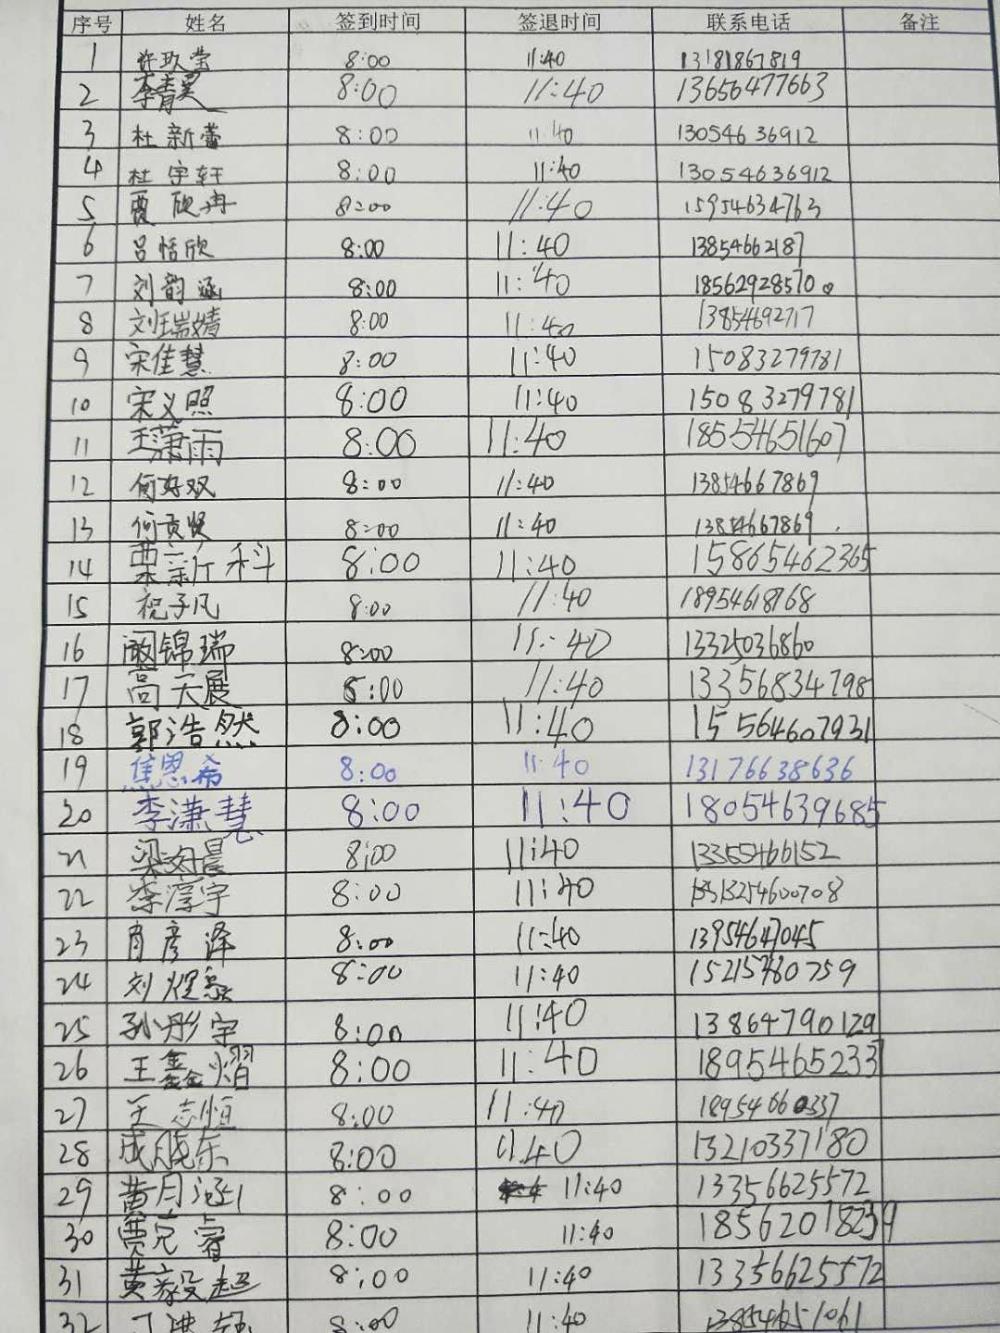 序号 姓名 签到时间 签退时间 联系电话 备注
1 许玖莹 8:00 11:40 13181867819
2 李青昊 8:00 11:40 13656477663
3 杜新蕾 8:00 11:40 13054636912
4 杜宇轩 8:00 11:40 13054636912
5 贾欣冉 8:00 11:40 15954634763
6 吕恬欣 8:00 11:40 13854662187
7 刘韵涵 8:00 11:40 18562928570
8 刘瑞婧 8:00 11:40 13854692717
9 宋佳慧 8:00 11:40 15083279781
10 宋义照 8:00 11:40 15083279781
11 王潇雨 8:00 11:40 18554651607
12 何好双 8:00 11:40 13854667869
13 何贡贤 8:00 11:40 13854667869
14 栗新科 8:00 11:40 15865462365
15 祝子凡 8:00 11:40 18954618768
16 阚锦瑞 8:00 11:40 13325036860
17 高天展 8:00 11:40 13356834798
18 郭浩然 8:00 11:40 15564607931
19 焦恩希 8:00 11:40 13176638636
20 李潇慧 8:00 11:40 18054639685
21 梁 晨 8:00 11:40 13355466152
22 李淳宇 8:00 11:40
23 肖彦泽 8:00 11:40 13954647045
24 刘煜 8:00 11:40 15215780759
25 孙彤宇 8:00 11:40 13864790129
26 王鑫熠 8:00 11:40 18954652337
27 王志恒 8:00 11:40 18954660337
28 成晓东 8:00 11:40 13210337180
29 黄月涵 8:00 11:40 13356625572
30 贾克睿 8:00 11:40
31 黄毅超 8:00 11:40 13356625572
32 8:00 11:40 13854651061